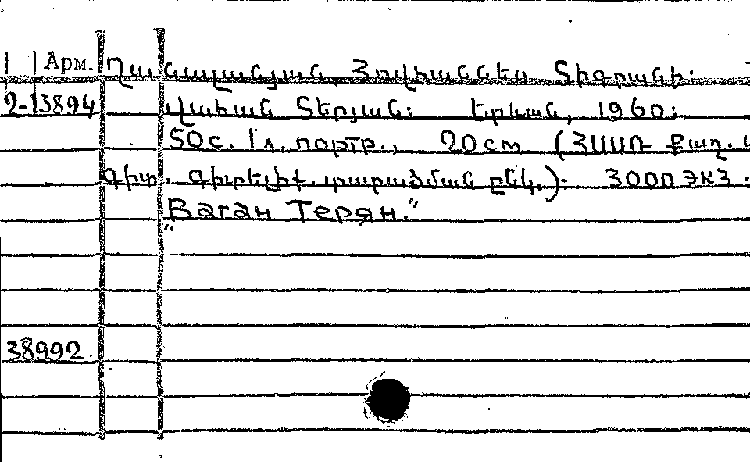 Арм. Ղանալանյան, Հովհաննես Տիգրանի:
2-13894 Վահան Տերյան: Երևան, 1960:
50с. 1 л. портр., 20см (ՀՍՍՌ Քաղ. և
գիտ. գիտելիք. տարածման ընկ.): 3000 экз.
"Ваган Терян."
38992